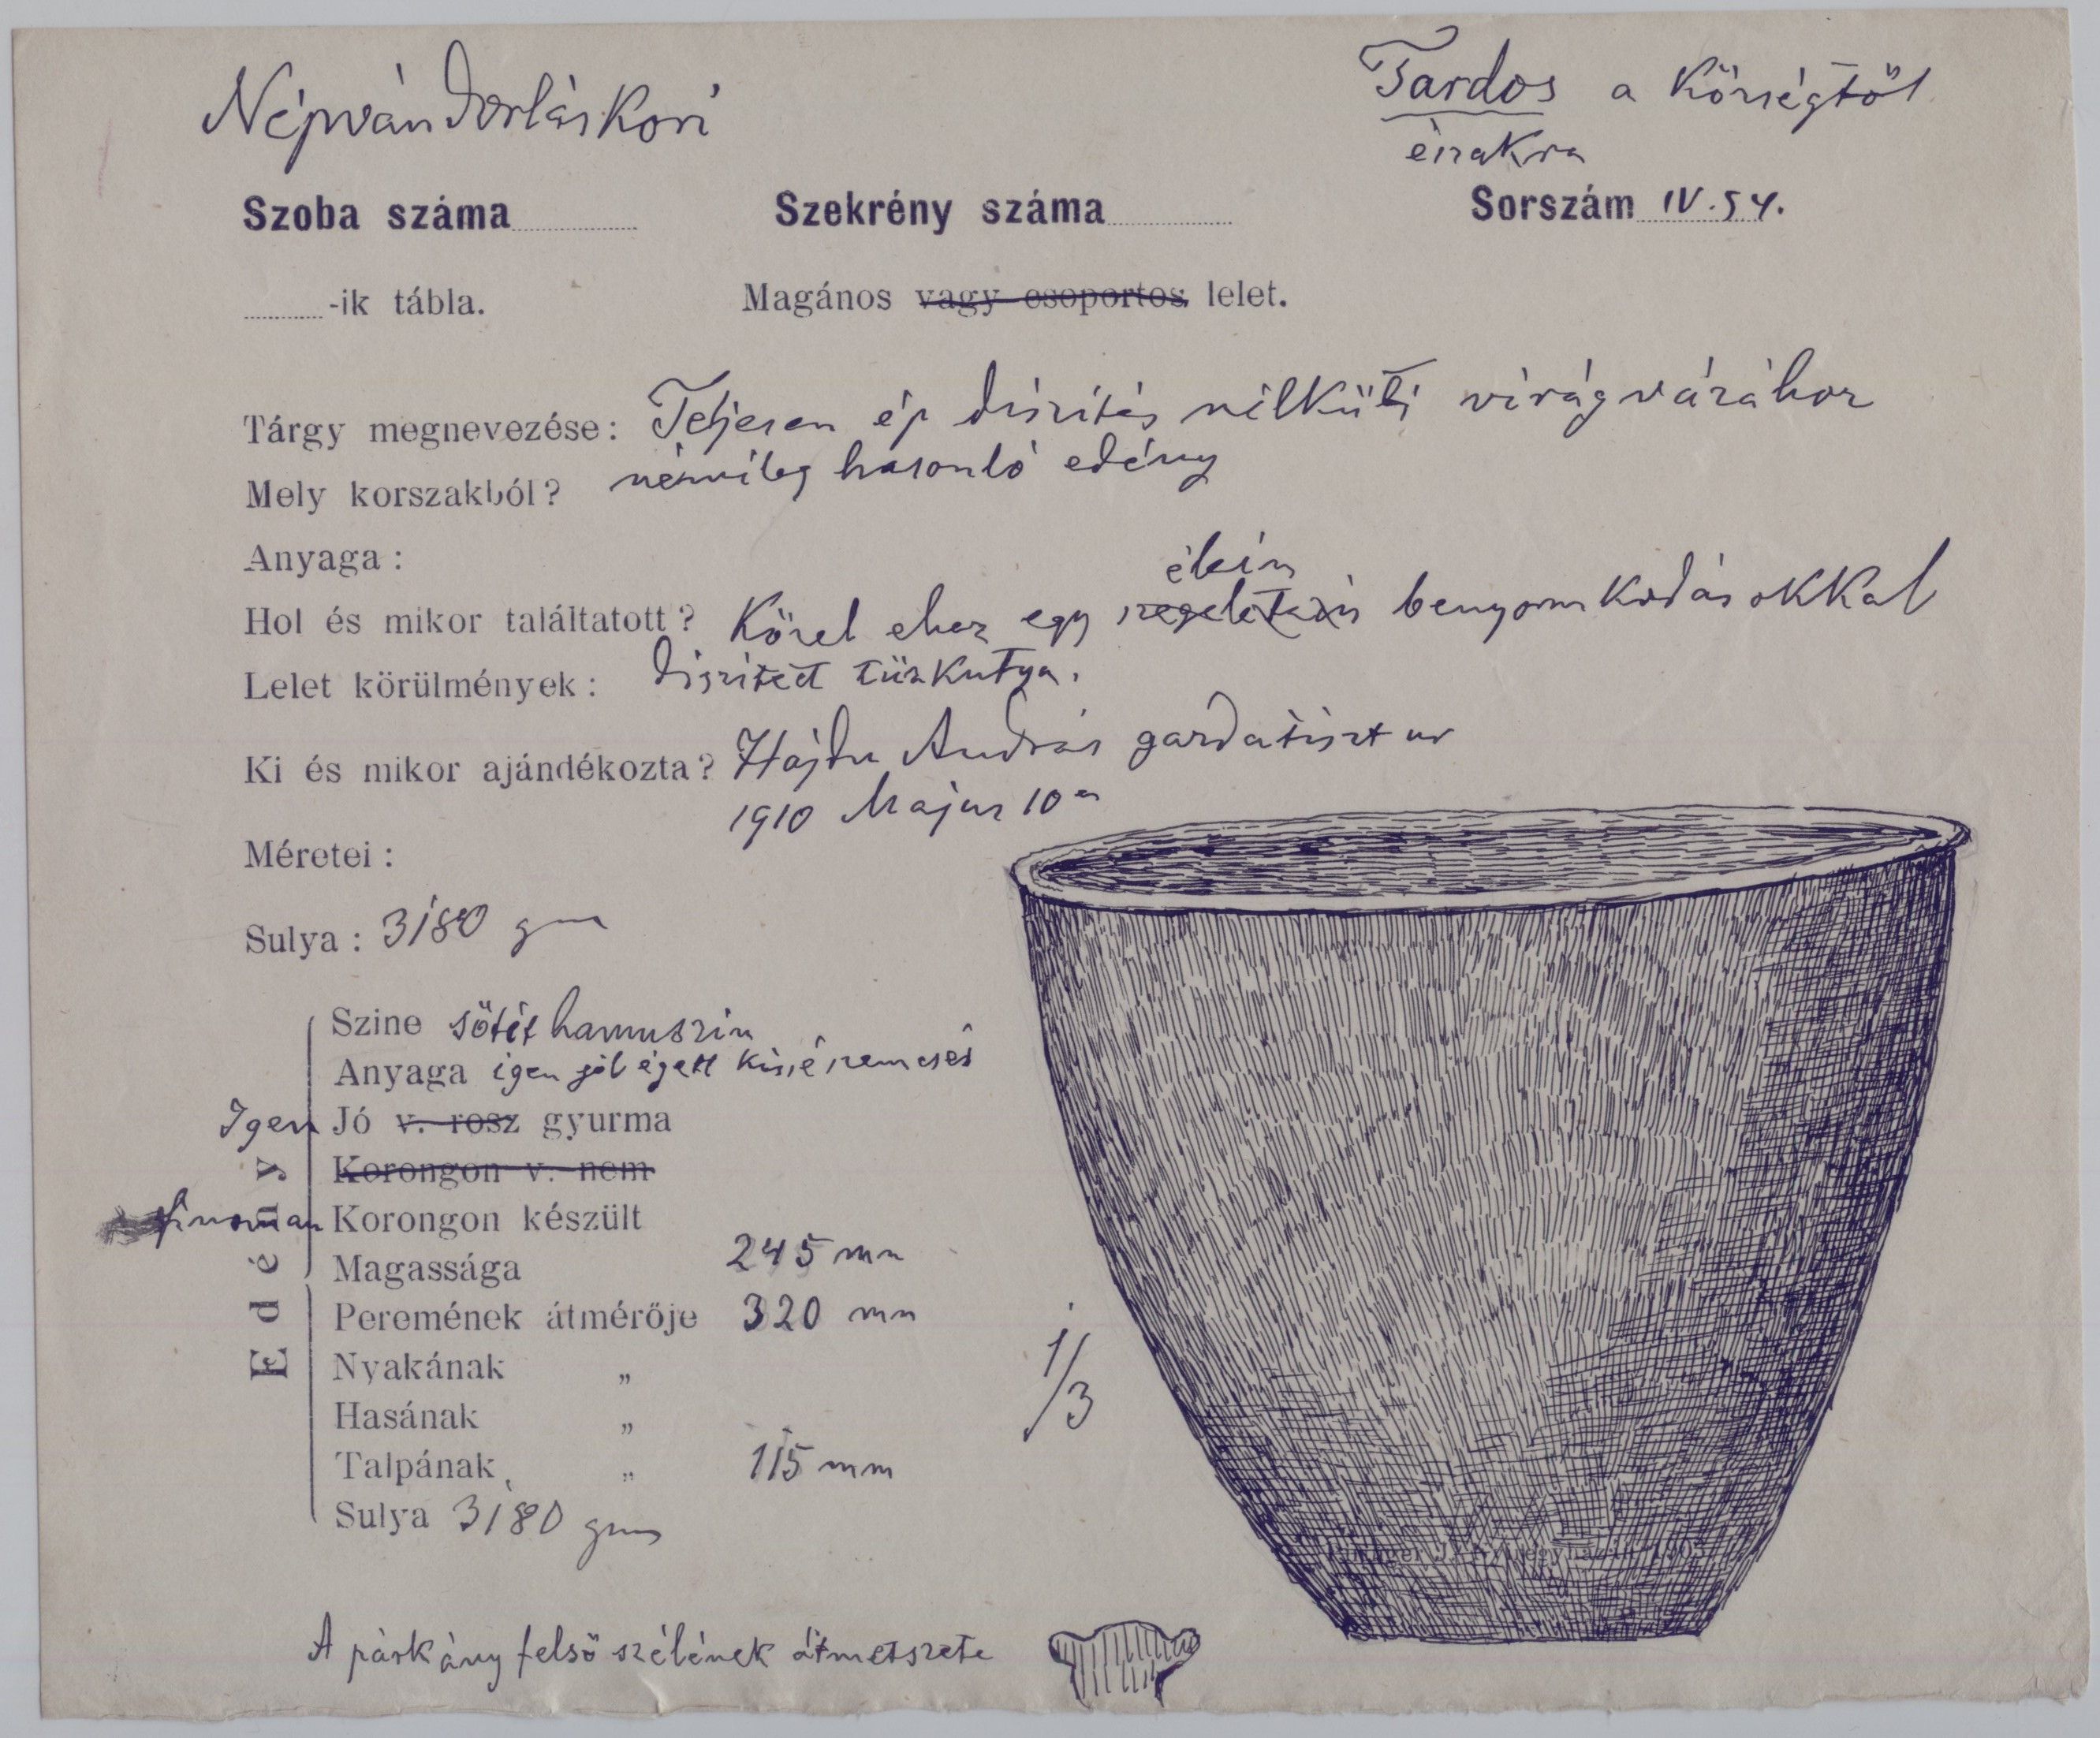 Népvándorláskori
Tardos a községtől
északra
Szoba száma
Szekrény száma
Sorszám IV. 54.
-ik tábla.
Magános vagy csoportos lelet.
Tárgy megnevezése: Teljesen ép diszités nélküli virágvázához
Mely korszakból? némileg hasonló edény
Anyaga:
élein
Hol és mikor találtatott? Közel ehez egy benyomkodásokkal
Lelet körülmények: diszitett tüzkutya.
Ki és mikor ajándékozta? Hajdu András gazdatiszt ur
1910 Majus 10en
Méretei:
Sulya: 3180 gm
Edény
Szine sötét hamuszin
Anyaga igen jól égett kissé szemcsés
Igen Jó v. rosz gyurma
Korongon v. nem
finoman Korongon készült
Magassága 245 mm
Peremének átmérője 320 mm
Nyakának „
Hasának „
Talpának „ 115 mm
Sulya 3180 gm
1/3
A párkány felső szélének átmetszete